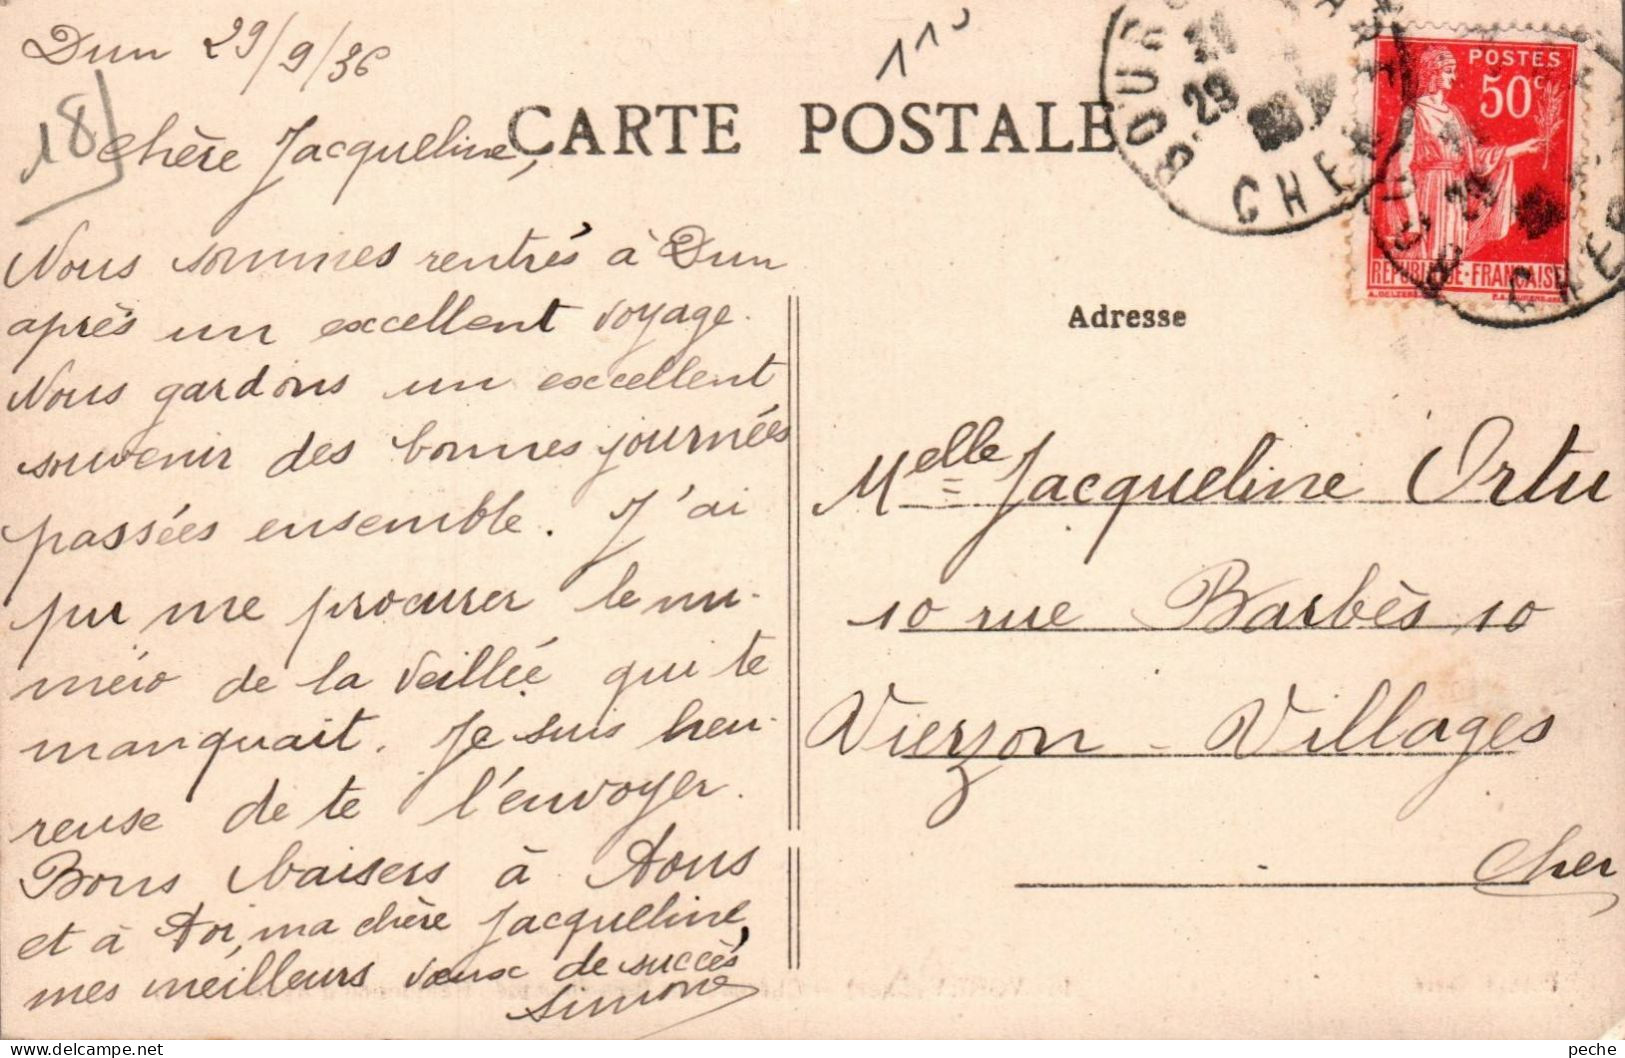 Dun 29/9/36
18
CARTE POSTALE
chère Jacqueline,
Nous sommes rentrés à Dun
après un excellent voyage.
Nous gardons un excellent
souvenir des bonnes journées
passées ensemble. J'ai
pu me procurer le nu-
méro de la Veillée qui te
manquait. Je suis heu-
reuse de te l'envoyer.
Bons baisers à tous
et à toi, ma chère Jacqueline,
mes meilleurs vœux de succès
Simone
BOURG
29
CHER
POSTES
50c
REPUBLIQUE-FRANÇAISE
Adresse
Melle Jacqueline Ortu
10 rue Barbès 10
Vierzon - Villages
Cher
peche